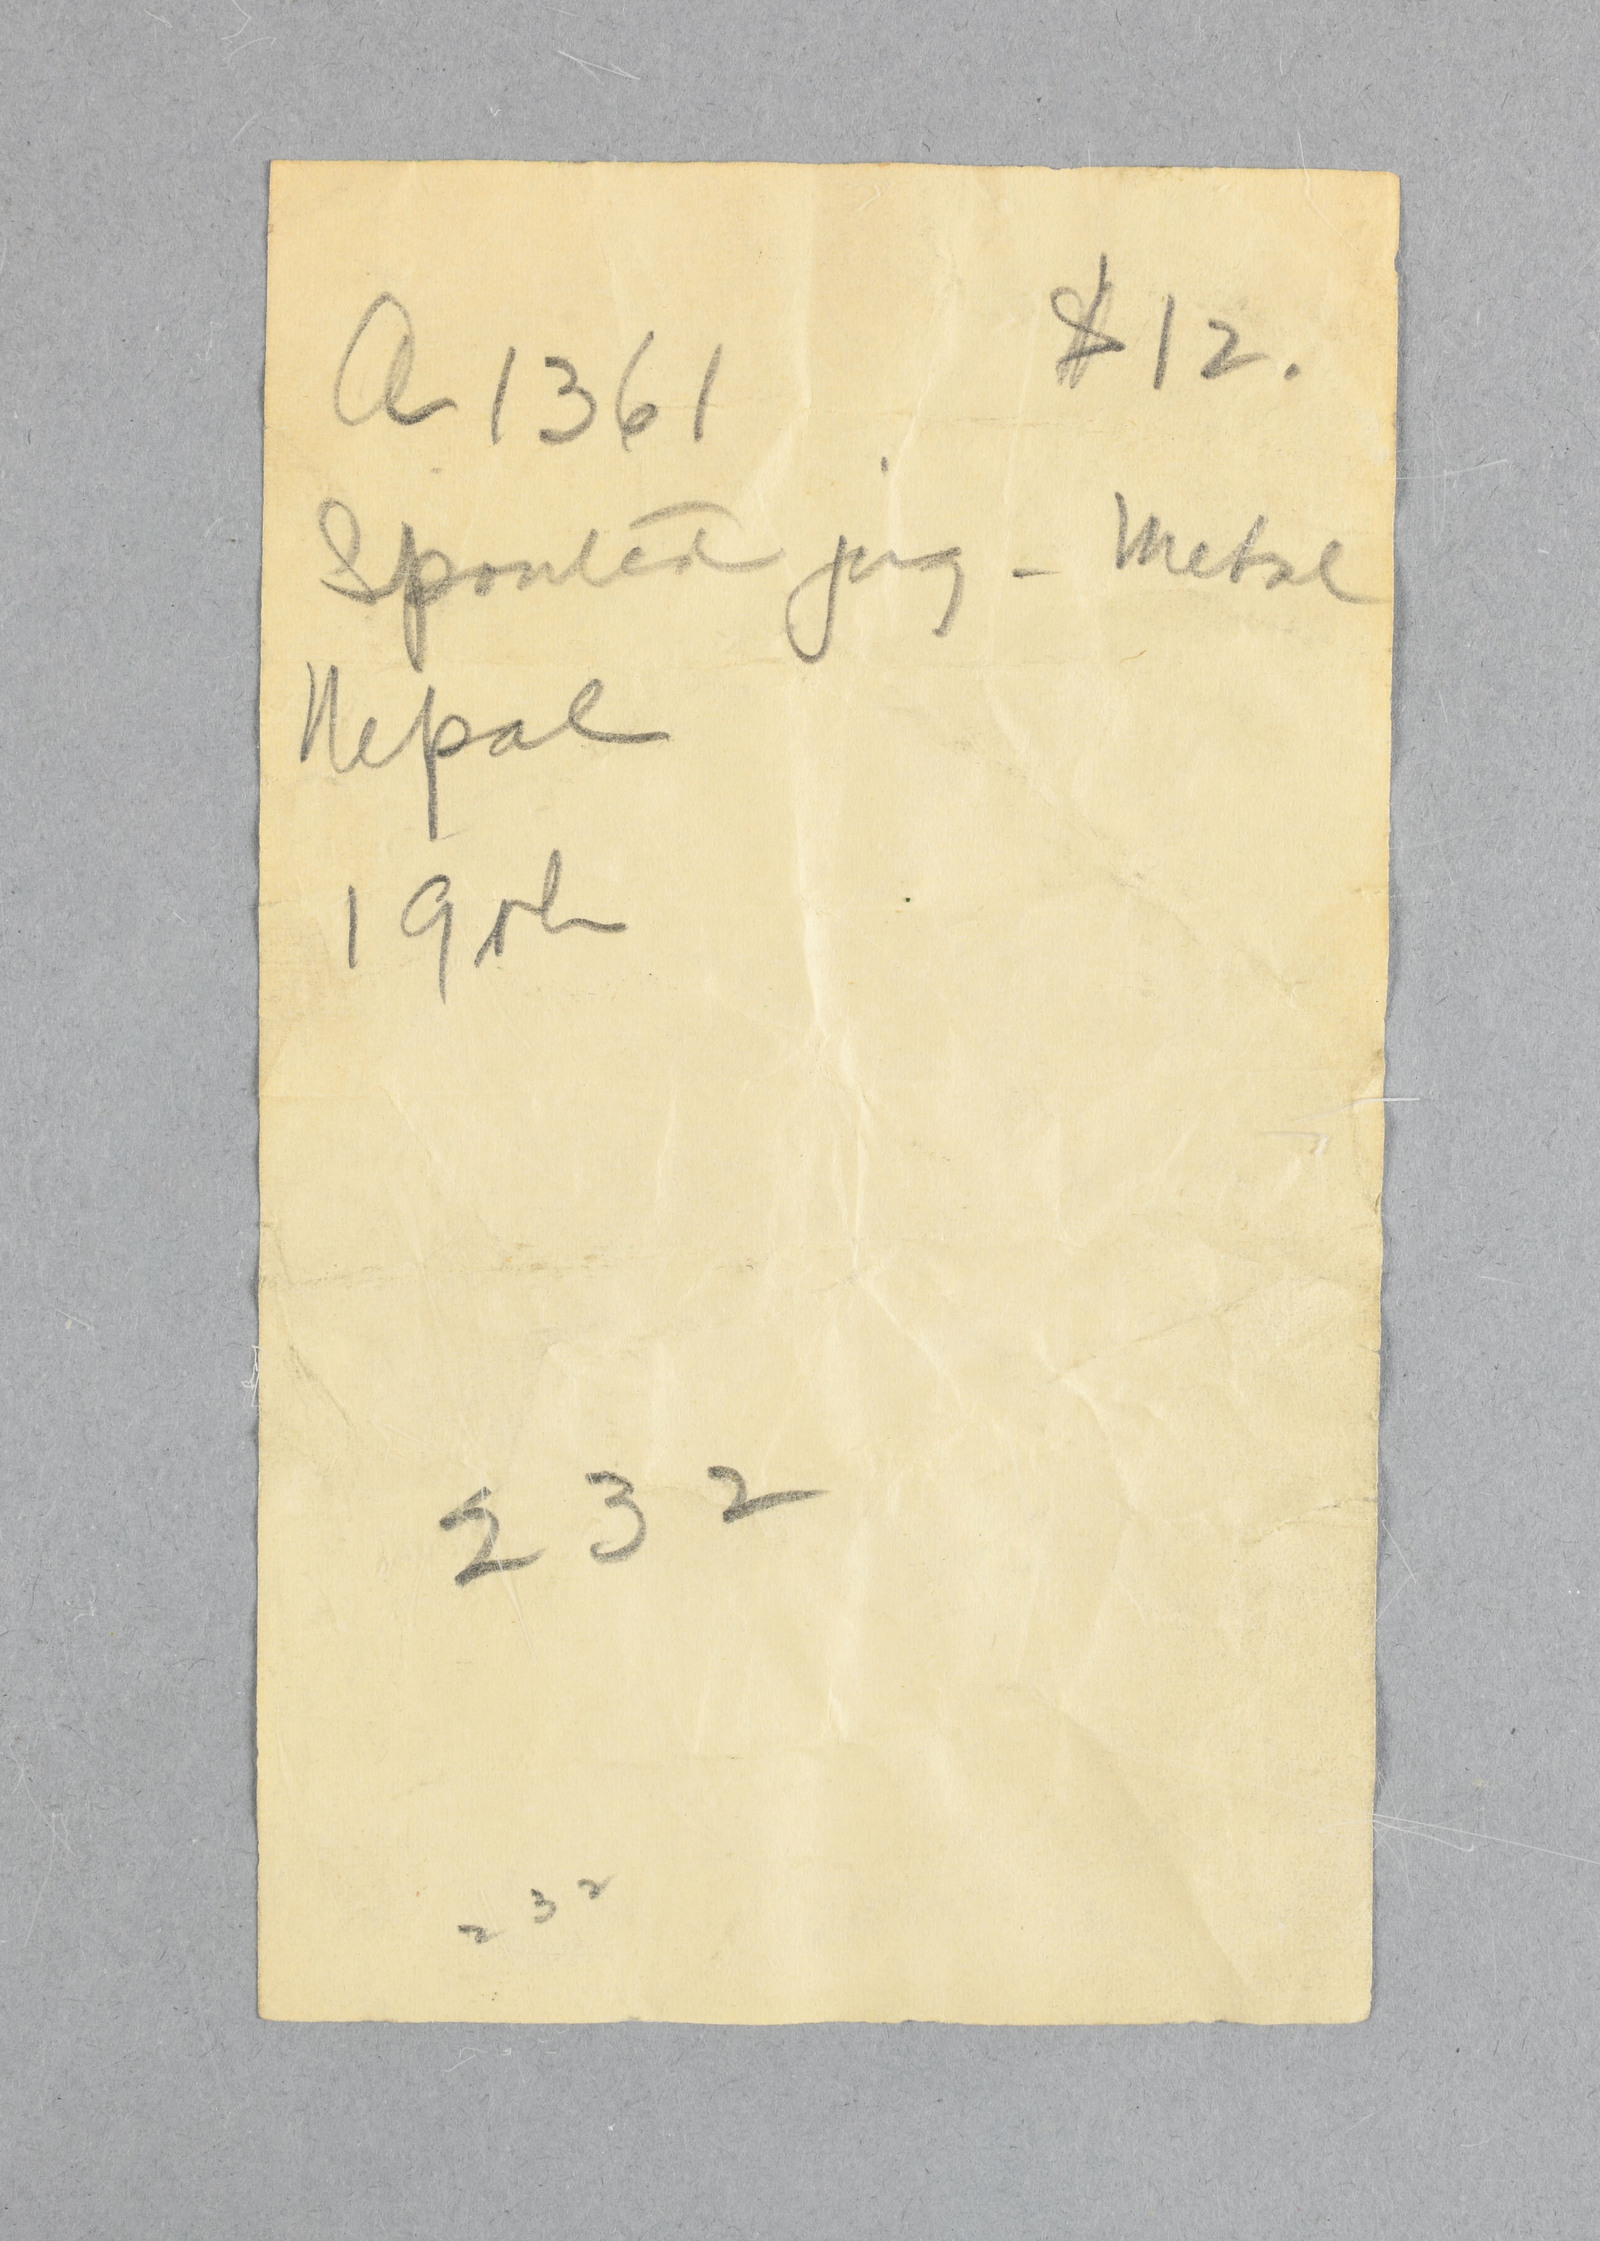 A 1361 $12.
Spouted jug - Metal
Nepal
19th
232
232